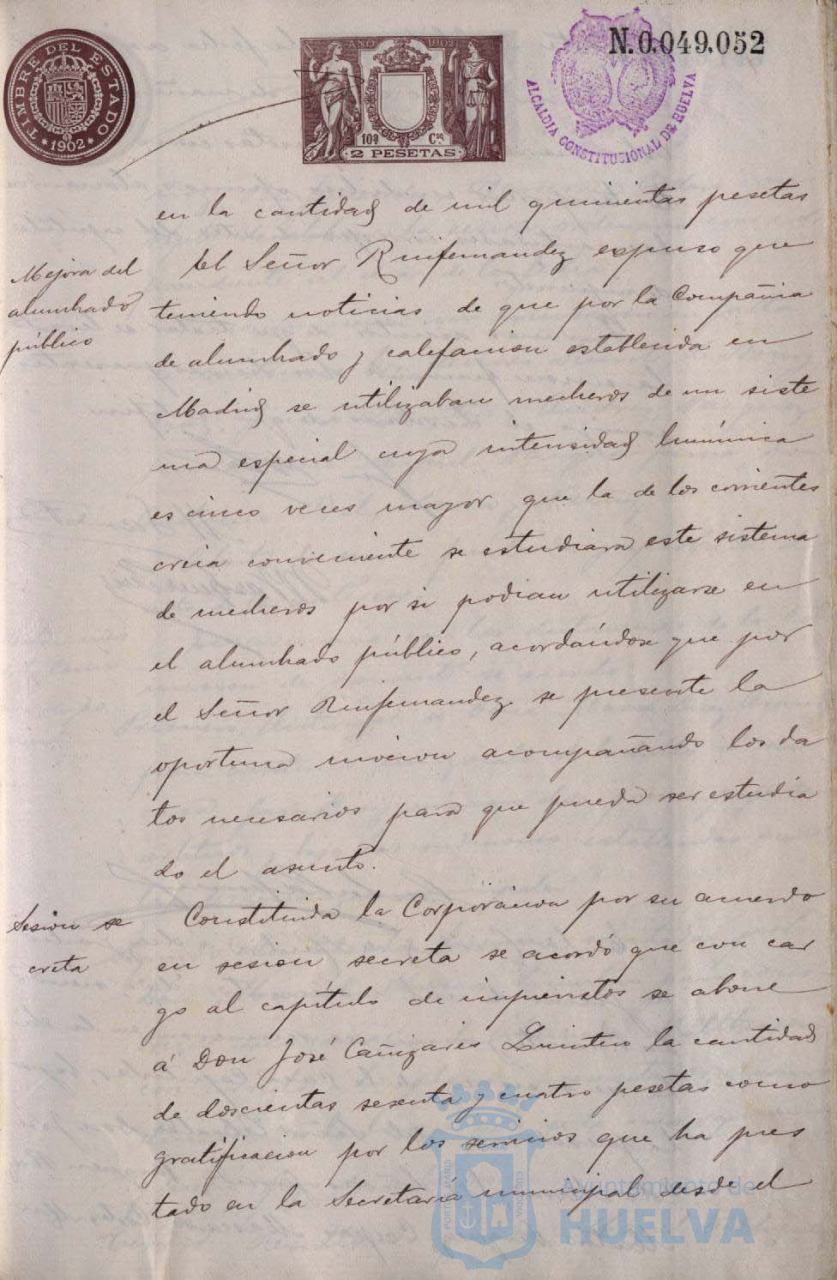 TIMBRE DEL ESTADO
* 1902 *
AÑO 1902
10ª Cª
2 PESETAS
N.0.049.052
ALCALDIA CONSTITUCIONAL DE HUELVA
en la cantidad de mil quinientas pesetas
Mejora del
alumbrado
público
El Señor Ruifernandez expuso que
teniendo noticias de que por la Compañia
de alumbrado y calefaccion establecida en
Madrid se utilizaban mecheros de un siste
ma especial cuya intensidad lumínica
es cinco veces mayor que la de los corrientes
creia conveniente se estudiara este sistema
de mecheros por si podian utilizarse en
el alumbrado público, acordándose que por
el Señor Ruifernandez se presente la
oportuna mocion acompañando los da
tos necesarios para que pueda ser estudia
do el asunto.
Sesion se
creta
Constituida la Corporacion por su acuerdo
en sesion secreta se acordó que con car
go al capítulo de imprevistos se abone
á Don José Cañizares Quintero la cantidad
de doscientas sesenta y cuatro pesetas como
gratificacion por los servicios que ha pres
tado en la Secretaría municipal desde el
Ayuntamiento de
HUELVA